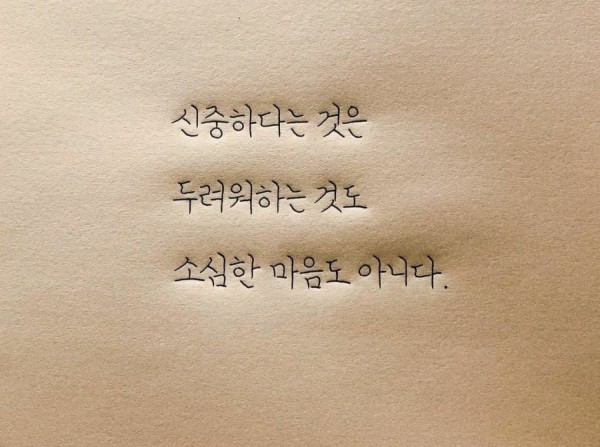 신중하다는 것은
두려워하는 것도
소심한 마음도 아니다.